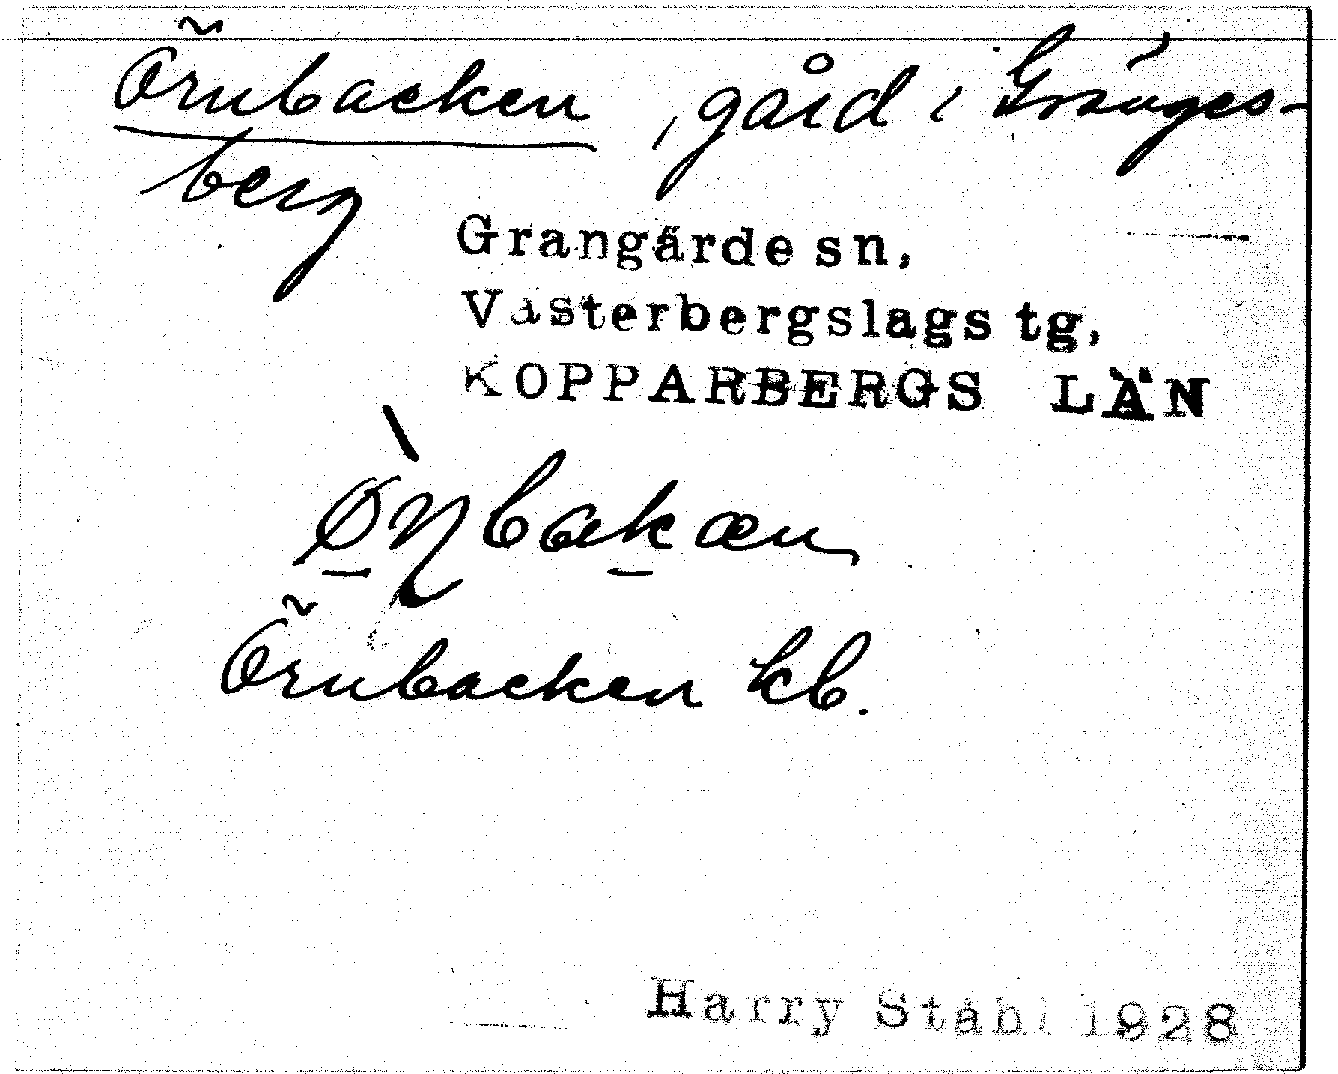 Örnbacken, gård i Gränges-
berg
Grangärde sn,
Västerbergslags tg,
KOPPARBERGS LÄN
Örnbacken kb.
Harry Ståhl 1928